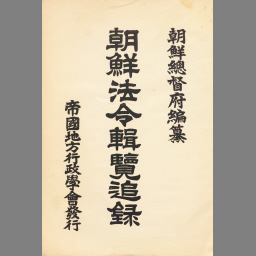 朝鮮總督府編纂
朝鮮法令輯覽追錄
帝國地方行政學會發行